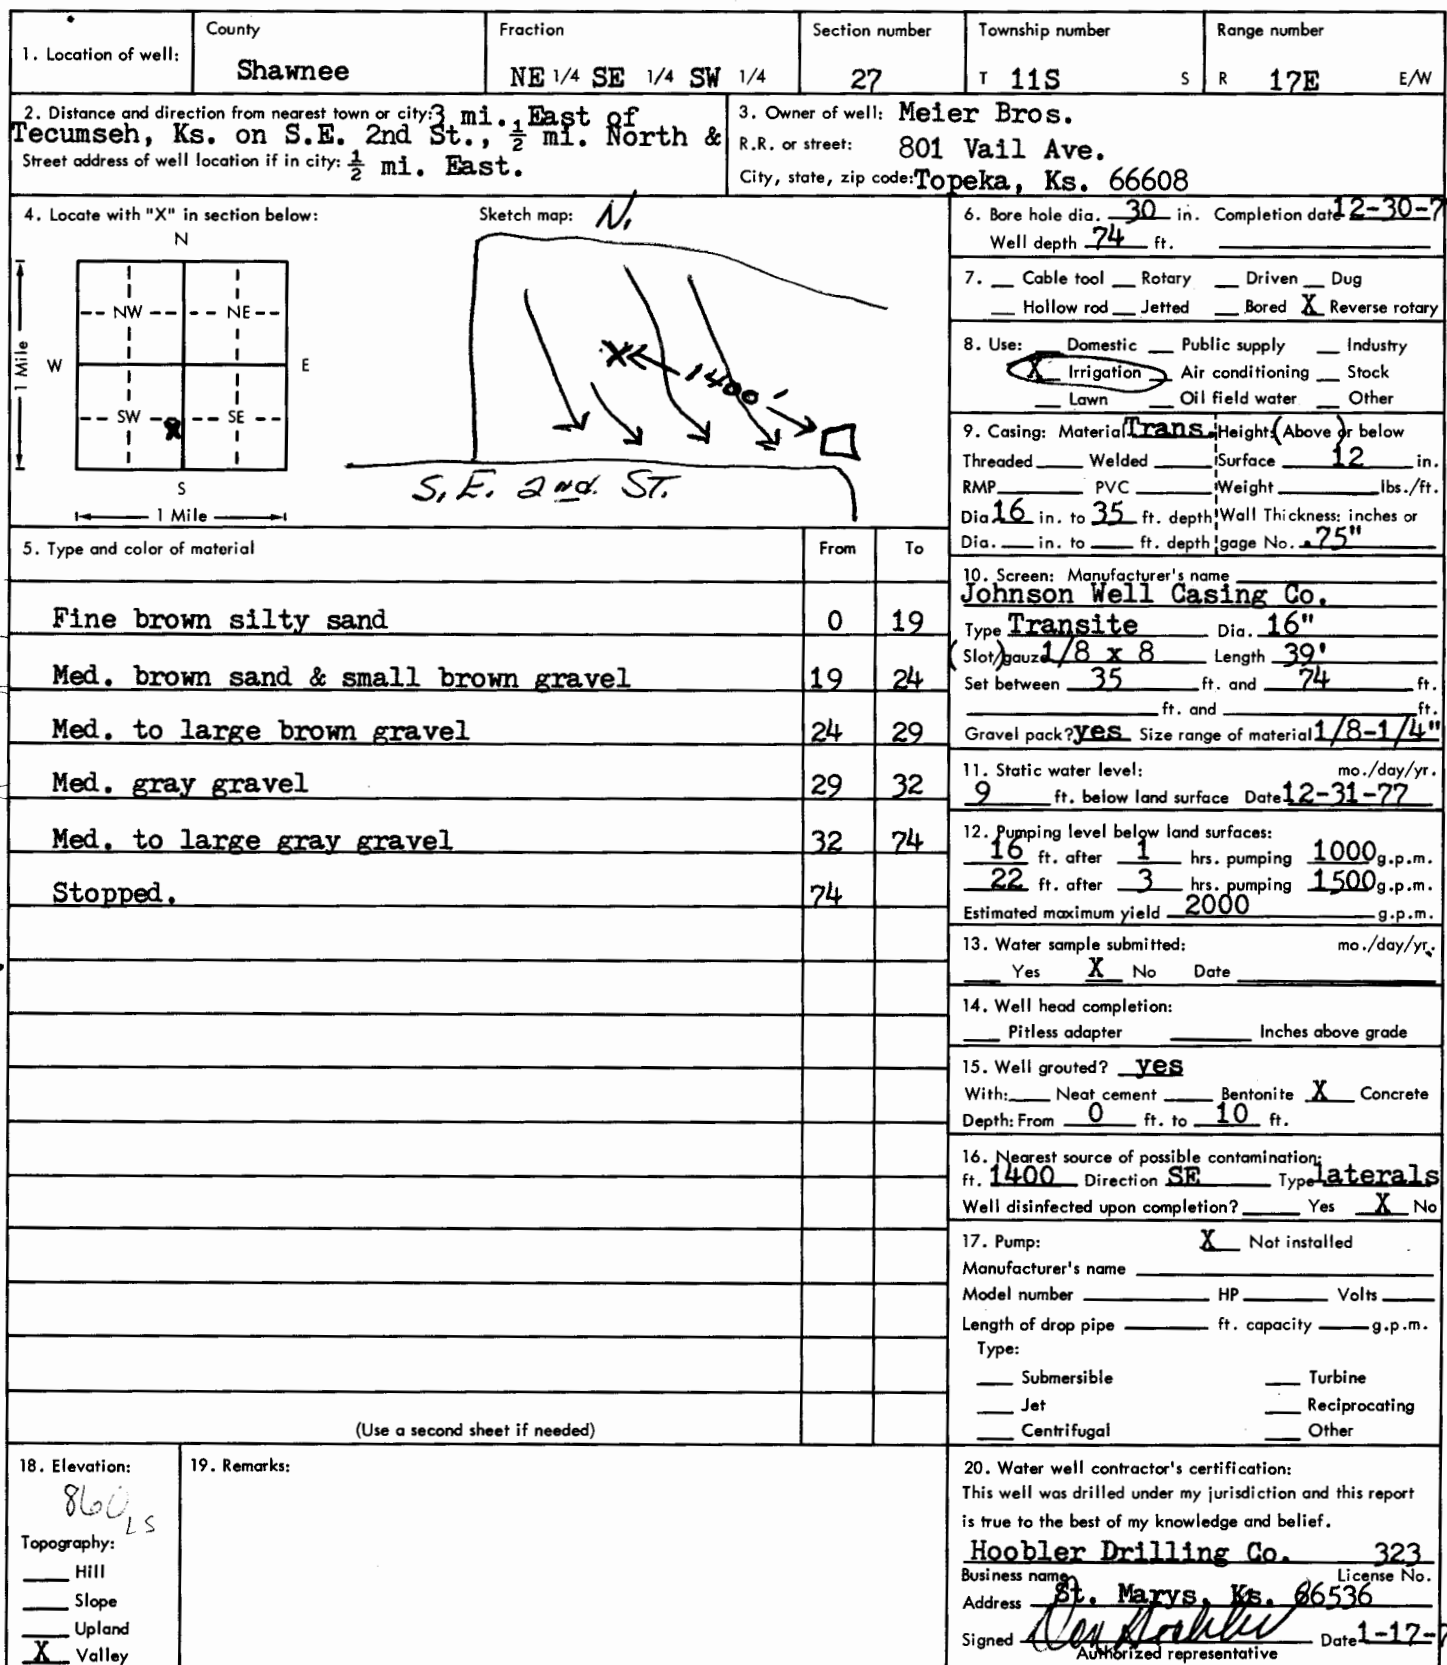 1. Location of well:
County
Shawnee
Fraction
NE 1/4 SE 1/4 SW 1/4
Section number
27
Township number
T 11S S
Range number
R 17E E/W
2. Distance and direction from nearest town or city: 3 mi. East of
Tecumseh, Ks. on S.E. 2nd St., ½ mi. North &
Street address of well location if in city: ½ mi. East.
3. Owner of well: Meier Bros.
R.R. or street: 801 Vail Ave.
City, state, zip code: Topeka, Ks. 66608
4. Locate with "X" in section below:
N
NW NE
W E
SW X SE
S
1 Mile
1 Mile
Sketch map: N.
X 1400'
S.E. 2nd. ST.
6. Bore hole dia. 30 in. Completion date 12-30-7
Well depth 74 ft.
7. Cable tool Rotary Driven Dug
Hollow rod Jetted Bored X Reverse rotary
8. Use: Domestic Public supply Industry
X Irrigation Air conditioning Stock
Lawn Oil field water Other
9. Casing: Material Trans. Height: (Above) or below
Threaded Welded Surface 12 in.
RMP PVC Weight lbs./ft.
Dia 16 in. to 35 ft. depth Wall Thickness: inches or
Dia. in. to ft. depth gage No. .75"
5. Type and color of material From To
Fine brown silty sand 0 19
Med. brown sand & small brown gravel 19 24
Med. to large brown gravel 24 29
Med. gray gravel 29 32
Med. to large gray gravel 32 74
Stopped. 74
(Use a second sheet if needed)
10. Screen: Manufacturer's name
Johnson Well Casing Co.
Type Transite Dia. 16"
(Slot/)gauze 1/8 x 8 Length 39'
Set between 35 ft. and 74 ft.
ft. and ft.
Gravel pack? yes Size range of material 1/8-1/4"
11. Static water level: mo./day/yr.
9 ft. below land surface Date 12-31-77
12. Pumping level below land surfaces:
16 ft. after 1 hrs. pumping 1000 g.p.m.
22 ft. after 3 hrs. pumping 1500 g.p.m.
Estimated maximum yield 2000 g.p.m.
13. Water sample submitted: mo./day/yr.
Yes X No Date
14. Well head completion:
Pitless adapter Inches above grade
15. Well grouted? yes
With: Neat cement Bentonite X Concrete
Depth: From 0 ft. to 10 ft.
16. Nearest source of possible contamination:
ft. 1400 Direction SE Type laterals
Well disinfected upon completion? Yes X No
17. Pump: X Not installed
Manufacturer's name
Model number HP Volts
Length of drop pipe ft. capacity g.p.m.
Type:
Submersible Turbine
Jet Reciprocating
Centrifugal Other
18. Elevation:
860 LS
Topography:
Hill
Slope
Upland
X Valley
19. Remarks:
20. Water well contractor's certification:
This well was drilled under my jurisdiction and this report
is true to the best of my knowledge and belief.
Hoobler Drilling Co. 323
Business name License No.
Address St. Marys, Ks. 66536
Signed Don Hoobler Date 1-17-7
Authorized representative